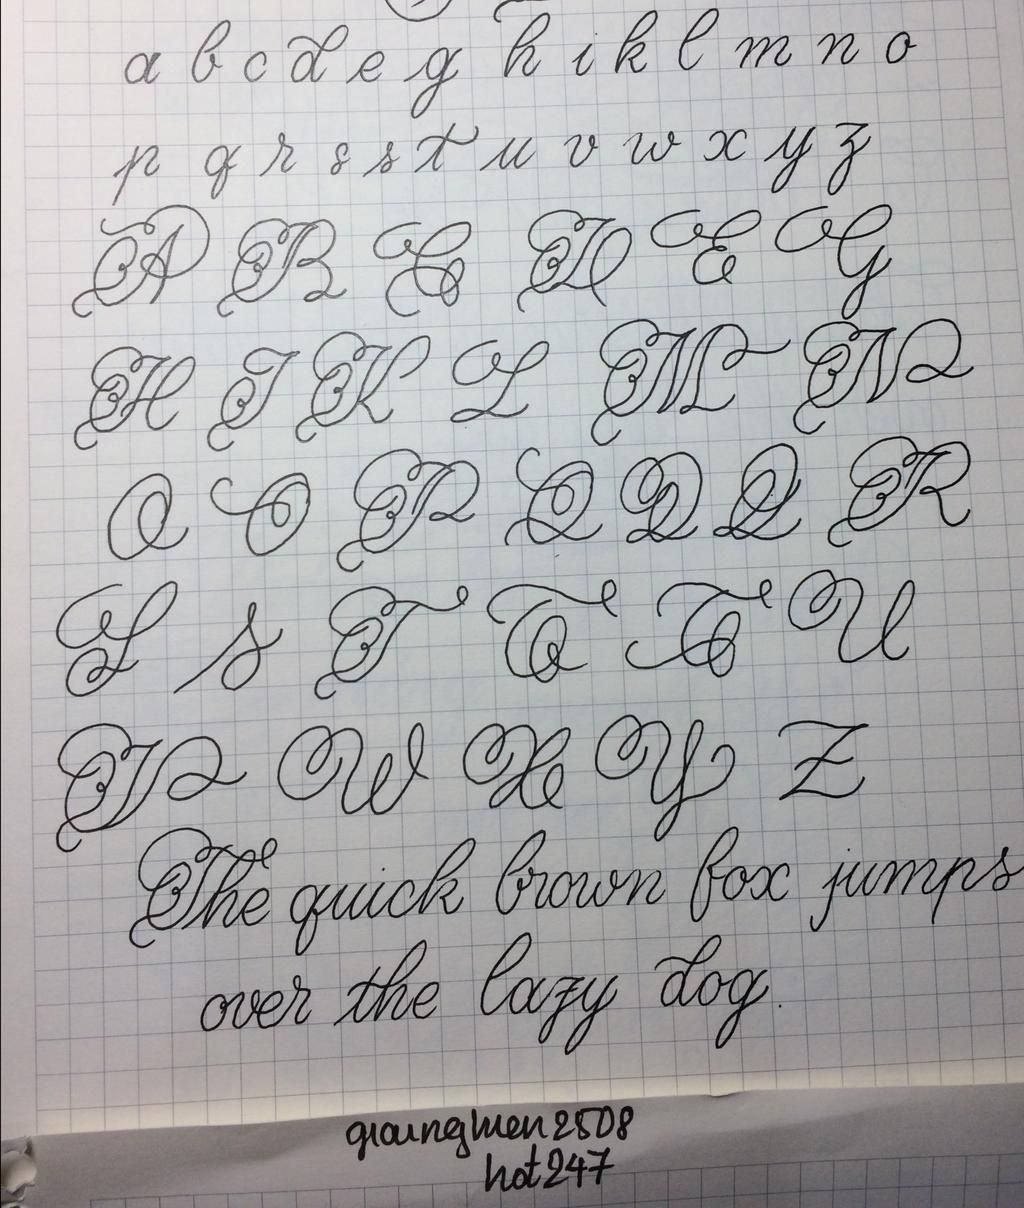 a b c d e g h i k l m n o
p q r s s t u v w x y z
A B C D E G
H I K L M N
O O P Q Q Q R
S s T T T U
V W X Y Z
The quick brown fox jumps
over the lazy dog.
hot247